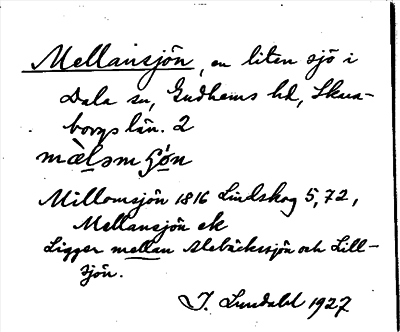 Mellansjön, en liten sjö i
Dala sn, Gudhems hd, Skara-
borgs län. 2
mæ̀ləmʃǿn
Millomsjön 1816 Lindskog 5,72,
Mellansjön ek
Ligger mellan Alebäckssjön och Lill-
sjön.
J. Lundahl 1927